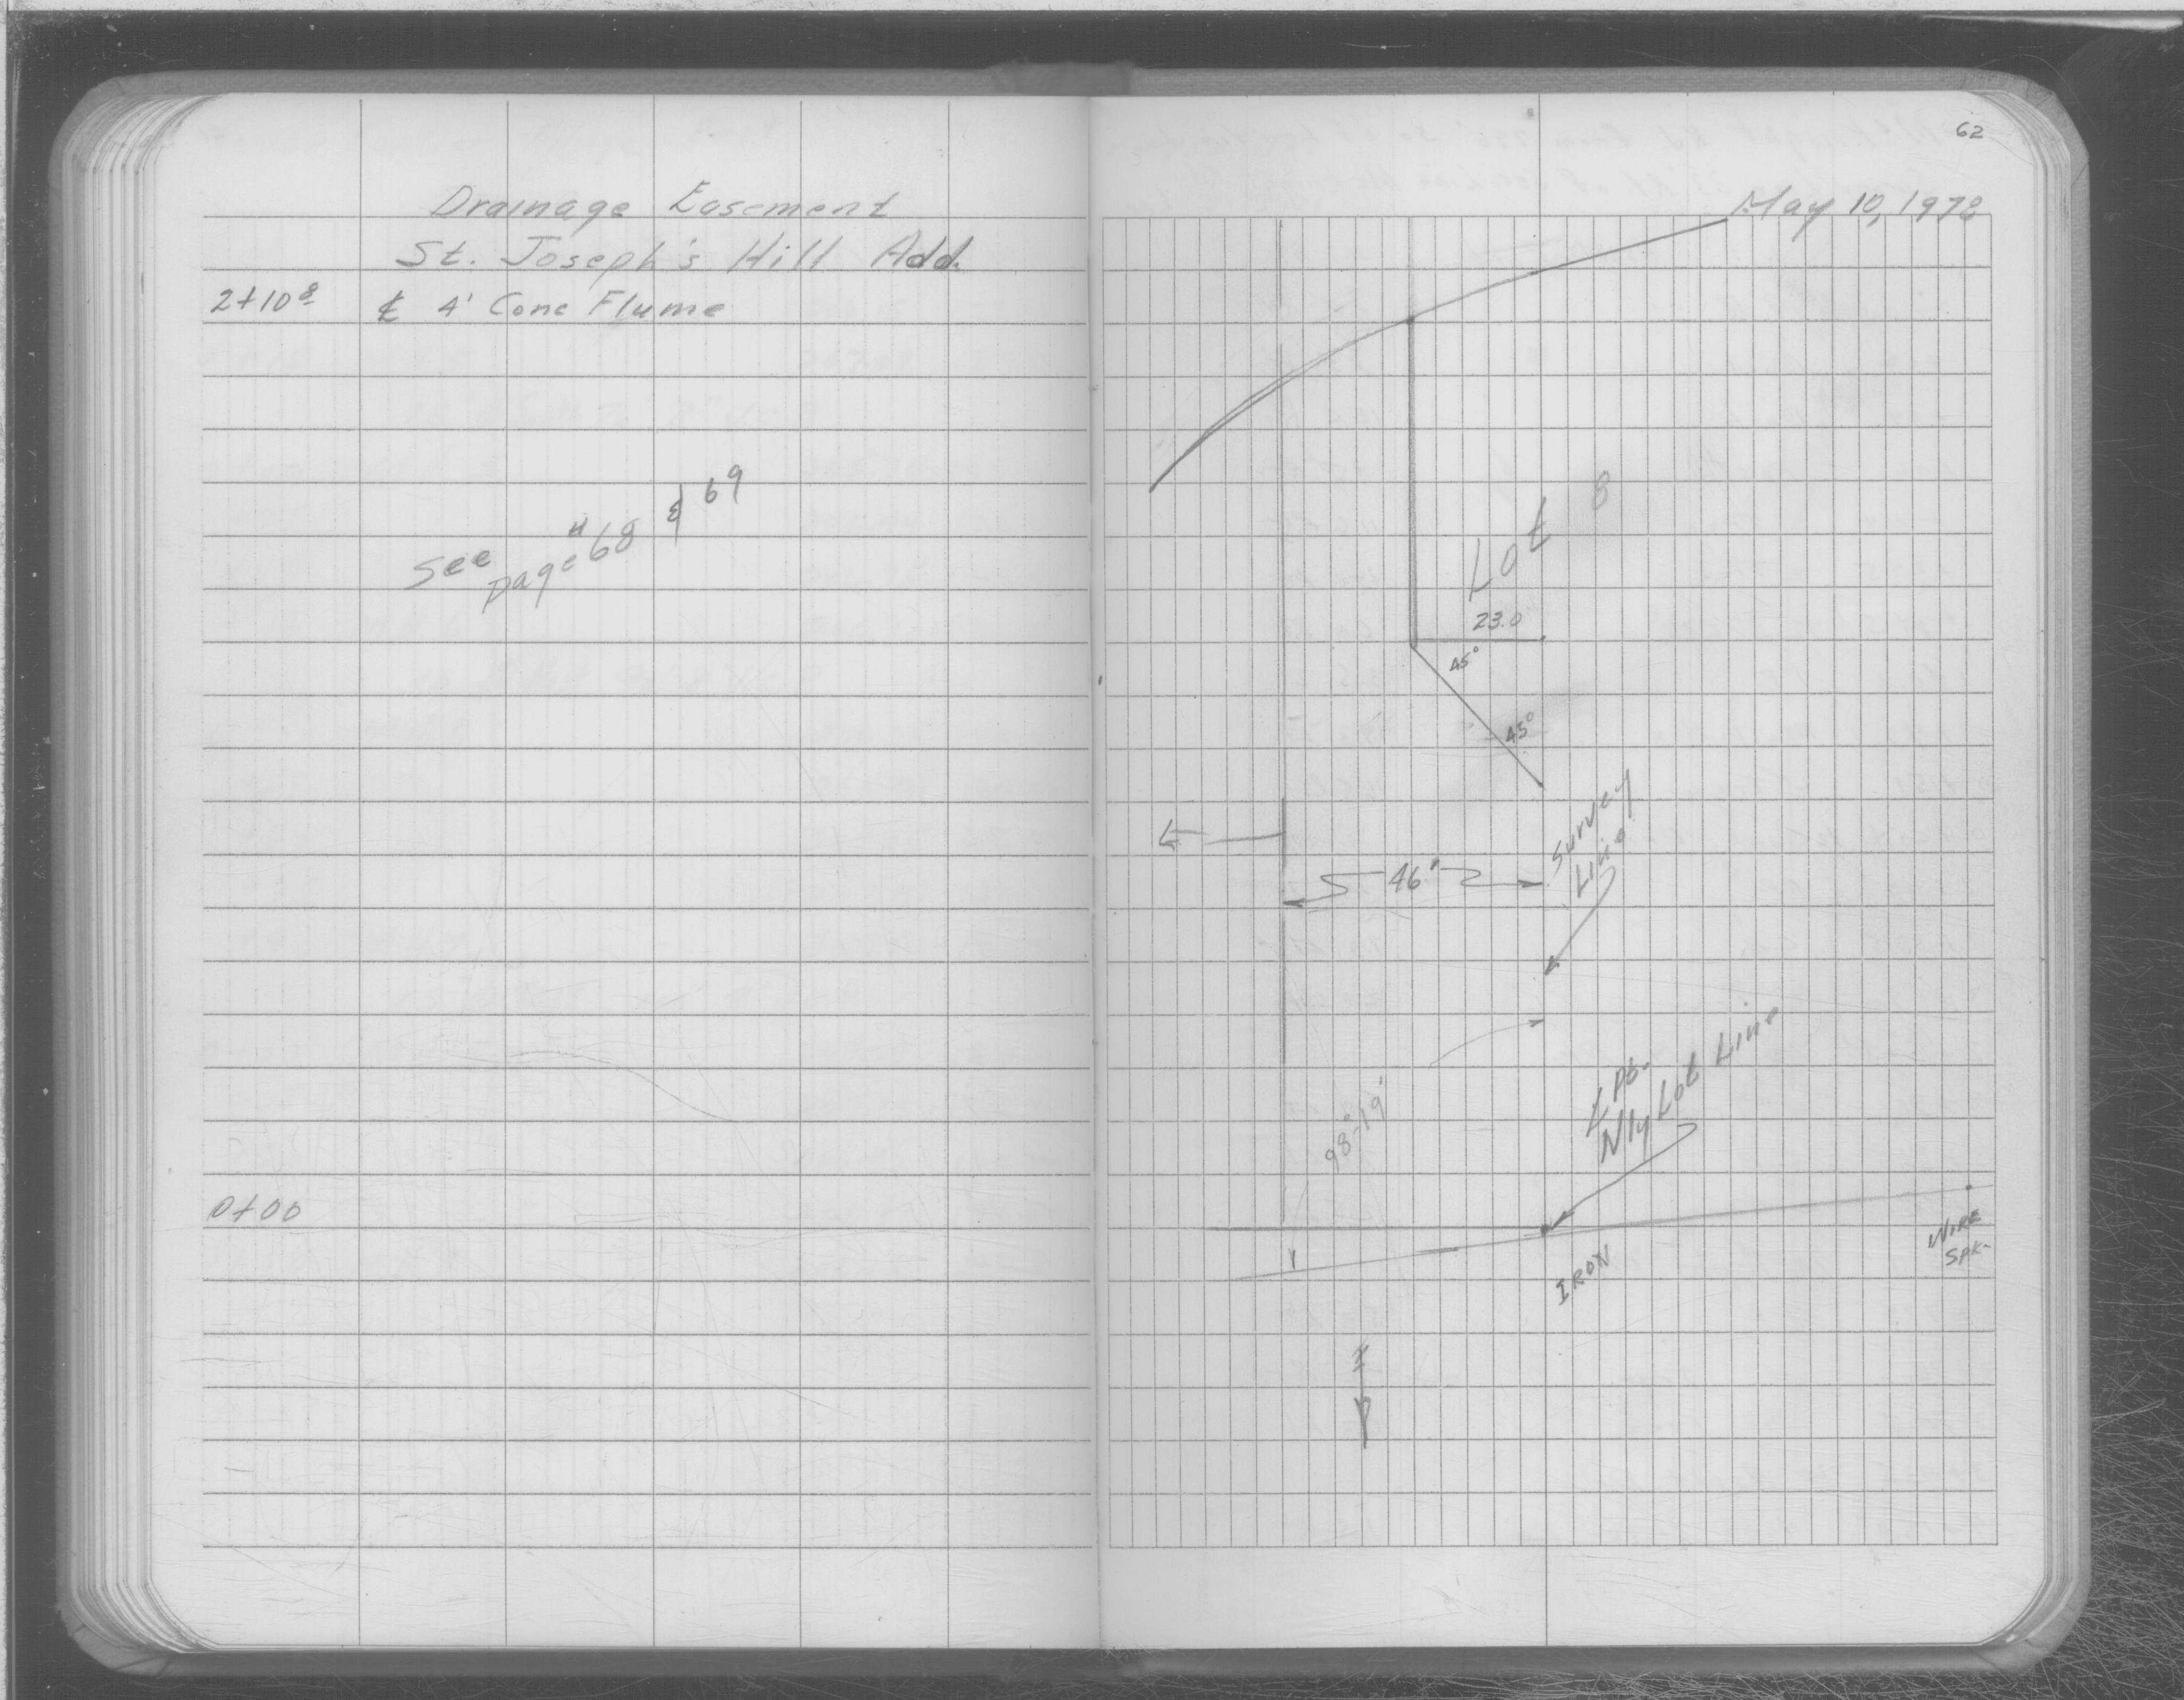 Drainage Easement
St. Joseph's Hill Add.
2+10⁸ ℄ 4' Conc Flume
See page #68 & 69
0+00
62
May 10, 1972
Lot 8
23.0
45°
45°
Survey
Line
46'
∠ Pt.
Nly Lot Line
98°-19'
IRON
WIRE
SPK.